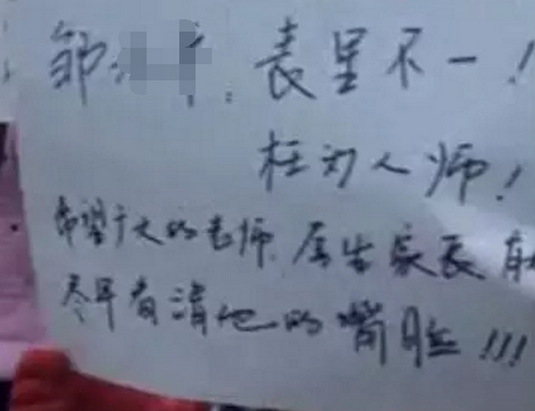 邹 : 表里不一!
枉为人师!
希望广大的老师、居生家长能
尽早看清他的嘴脸!!!